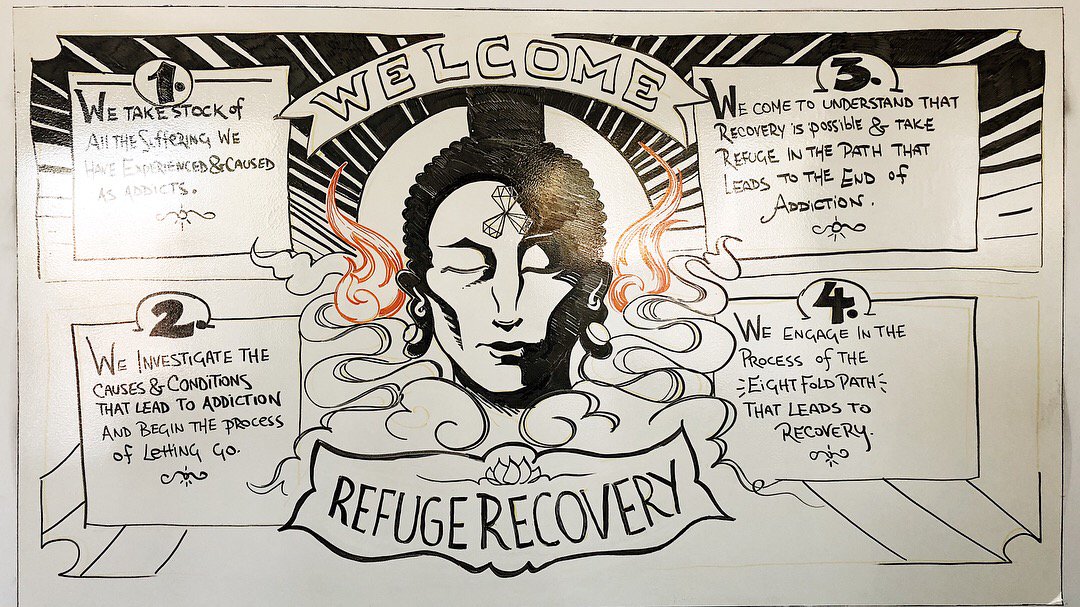 WELCOME
1.
WE TAKE STOCK of
All THE SUffERING WE
HAVE EXPERIENCED & CAUSED
AS ADDICTS.
2.
WE INVESTIGATE THE
CAUSES & CONDITIONS
THAT LEAD TO ADDICTION
AND BEGIN THE PROCESS
of LETTING GO.
3.
WE COME TO UNDERSTAND THAT
RECOVERY is possible & TAKE
REFUGE IN THE PATH THAT
LEADS TO THE END of
ADDICTION.
4.
WE ENGAGE IN THE
PROCESS of THE
EIGHT FOLD PATH
THAT LEADS TO
RECOVERY.
REFUGE RECOVERY